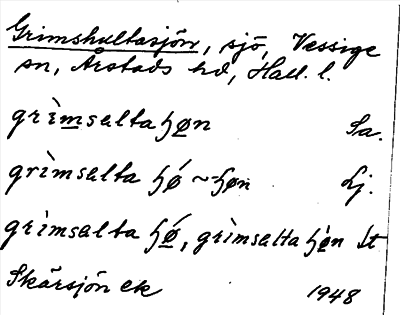 Grimshultasjön, sjö, Vessige
sn, Årstads hd, Hall. l.
grìmsalta ɧøn Sa.
grìmsalta ɧǿ ~ ɧøn Lj.
grìmsalta ɧǿ, grìmsalta ɧøn It
Skärsjön ek 1948